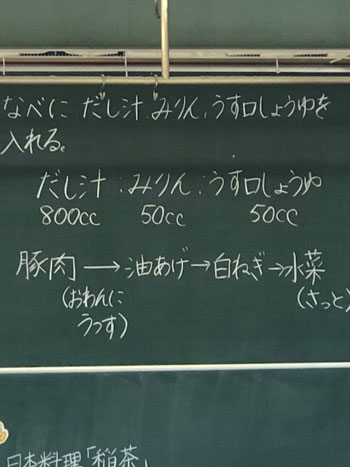 なべに だし汁、みりん、うす口しょうゆを
入れる。
だし汁:みりん:うす口しょうゆ
800cc 50cc 50cc
豚肉→油あげ→白ねぎ→水菜
(おわんに (さっと)
うつす)
日本料理「稲茶」